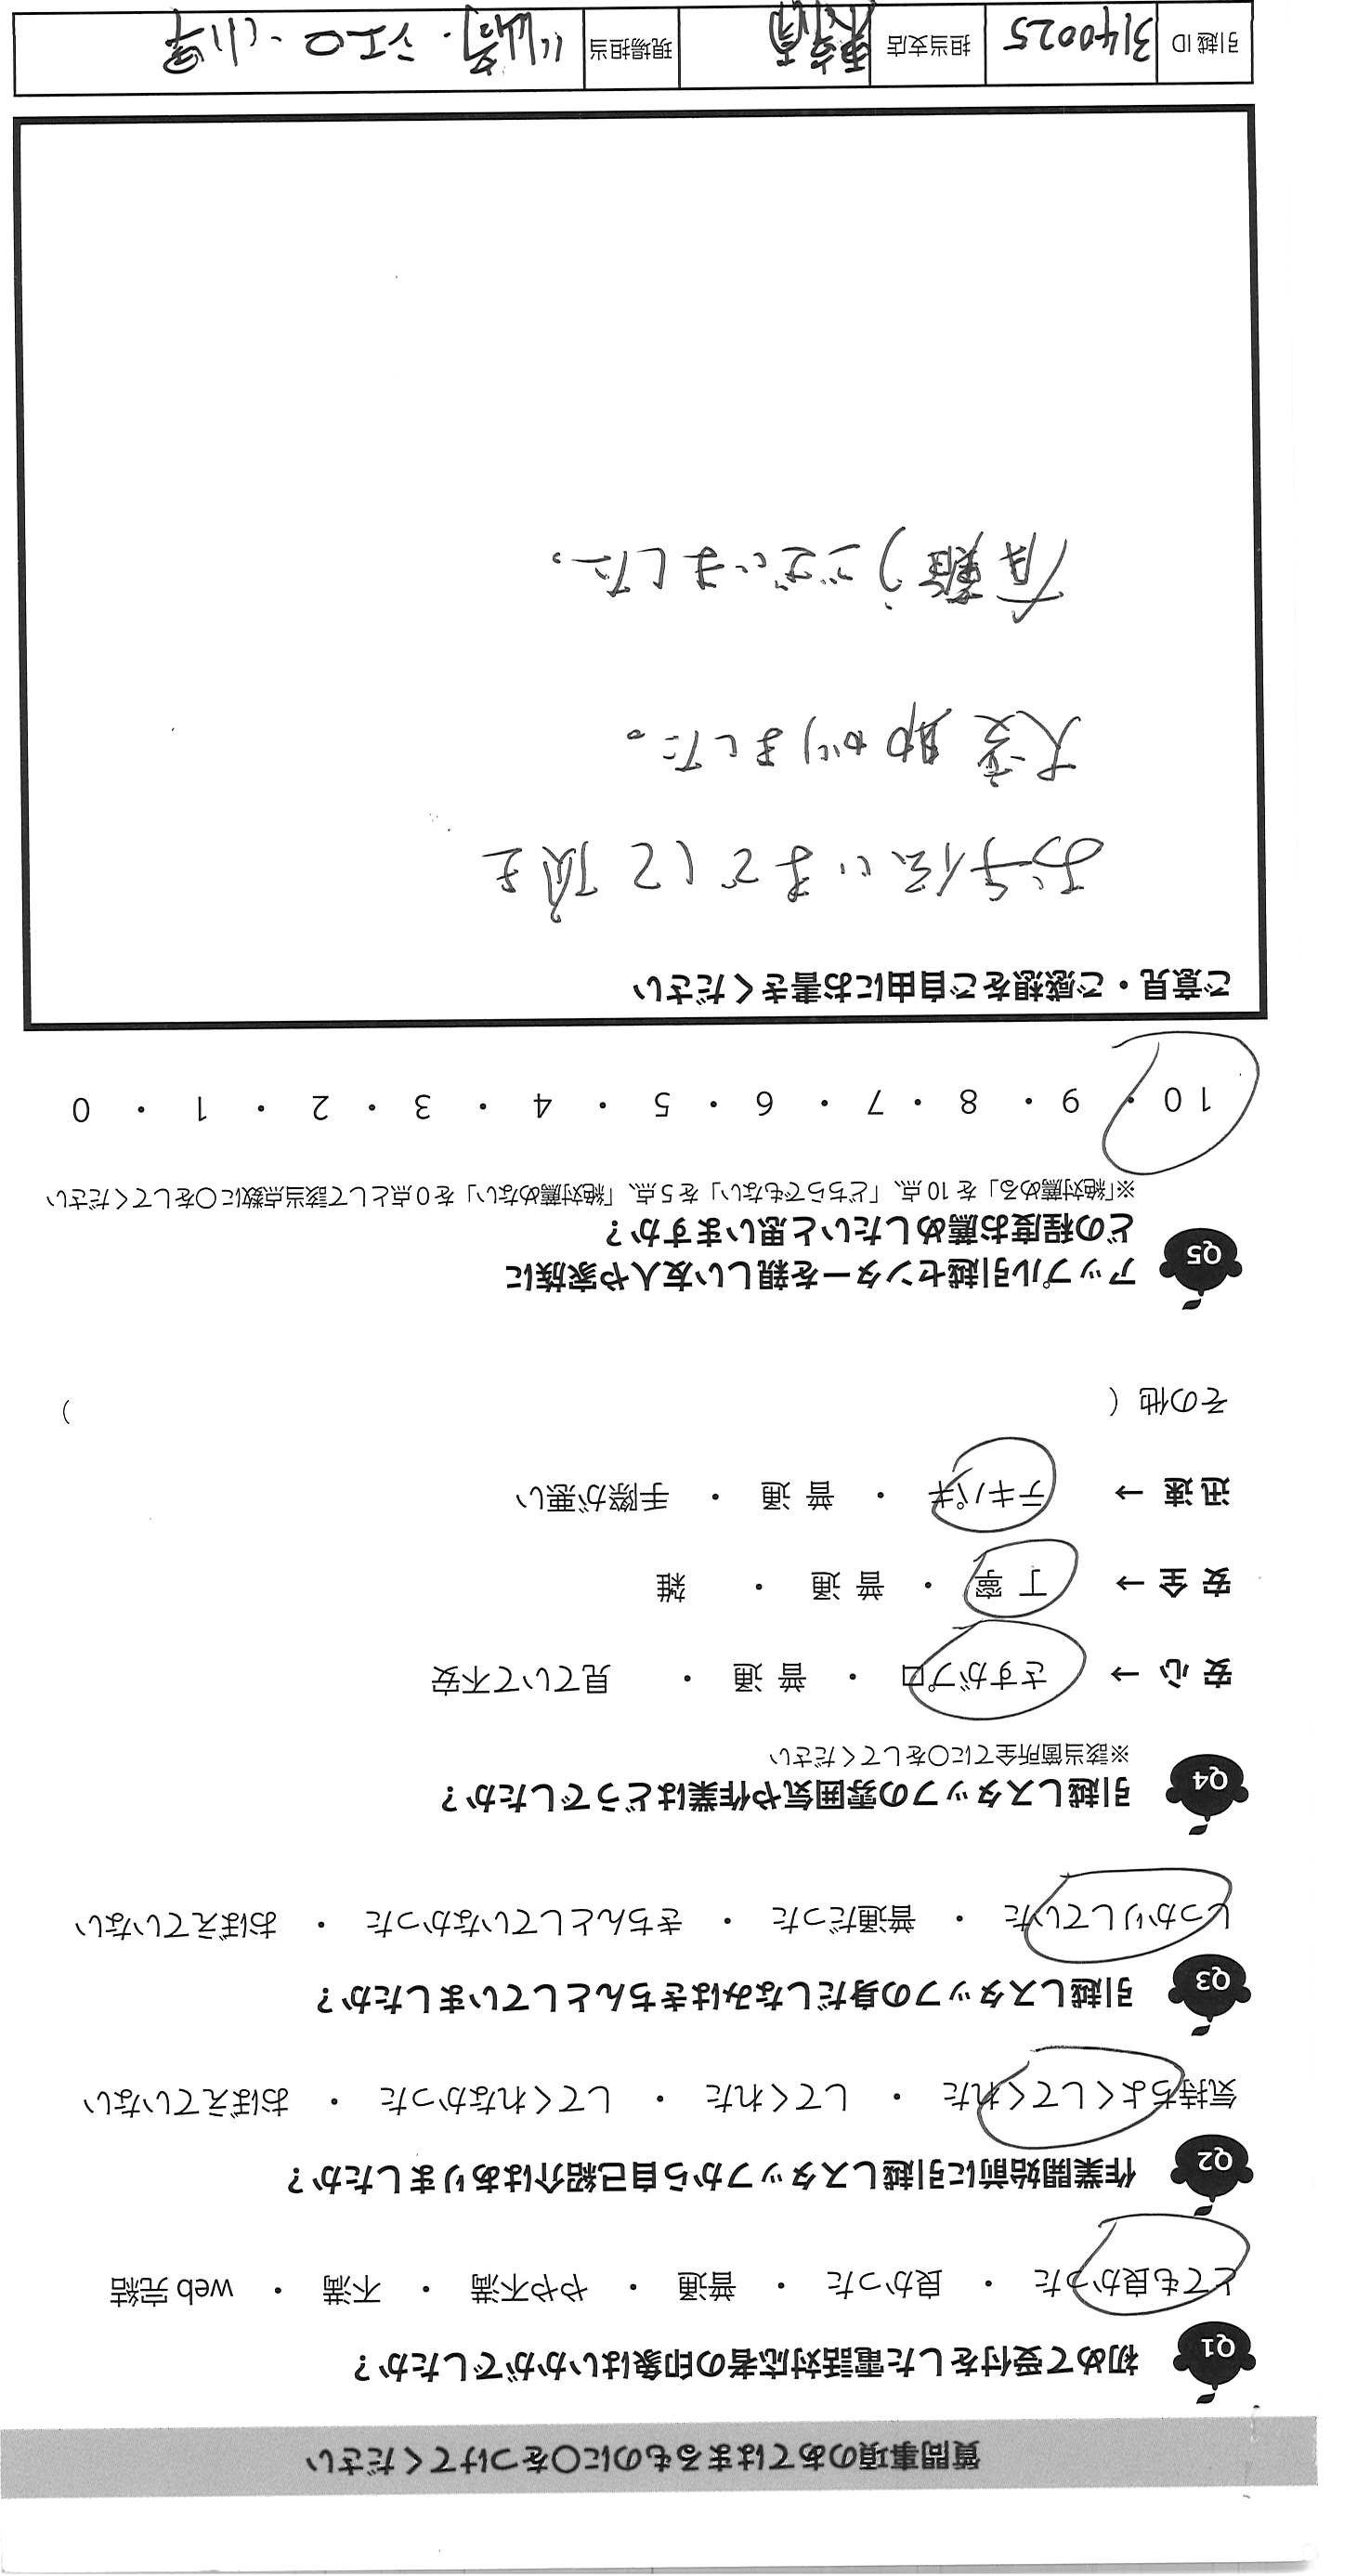 質問事項のあてはまるものに○をつけてください
Q1 初めて受付をした電話対応者の印象はいかがでしたか？
とても良かった ・ 良かった ・ 普通 ・ やや不満 ・ 不満 ・ web 完結
Q2 作業開始前に引越しスタッフから自己紹介はありましたか？
気持ちよくしてくれた ・ してくれた ・ してくれなかった ・ おぼえていない
Q3 引越しスタッフの身だしなみはきちんとしていましたか？
しっかりしていた ・ 普通だった ・ きちんとしていなかった ・ おぼえていない
Q4 引越しスタッフの雰囲気や作業はどうでしたか？
※該当箇所全てに○をしてください
安 心 → さすがプロ ・ 普 通 ・ 見ていて不安
安 全 → 丁 寧 ・ 普 通 ・ 雑
迅 速 → テキパキ ・ 普 通 ・ 手際が悪い
その他（ ）
Q5 アップル引越センターを親しい友人や家族に
どの程度お薦めしたいと思いますか？
※「絶対薦める」を 10 点、「どちらでもない」を 5 点、「絶対薦めない」を 0 点として該当点数に○をしてください
10 ・ 9 ・ 8 ・ 7 ・ 6 ・ 5 ・ 4 ・ 3 ・ 2 ・ 1 ・ 0
ご意見・ご感想をご自由にお書きください
お手伝いまでして頂き
大変助かりました。
有難うございました。
引越 ID 3140025 担当支店 現場担当